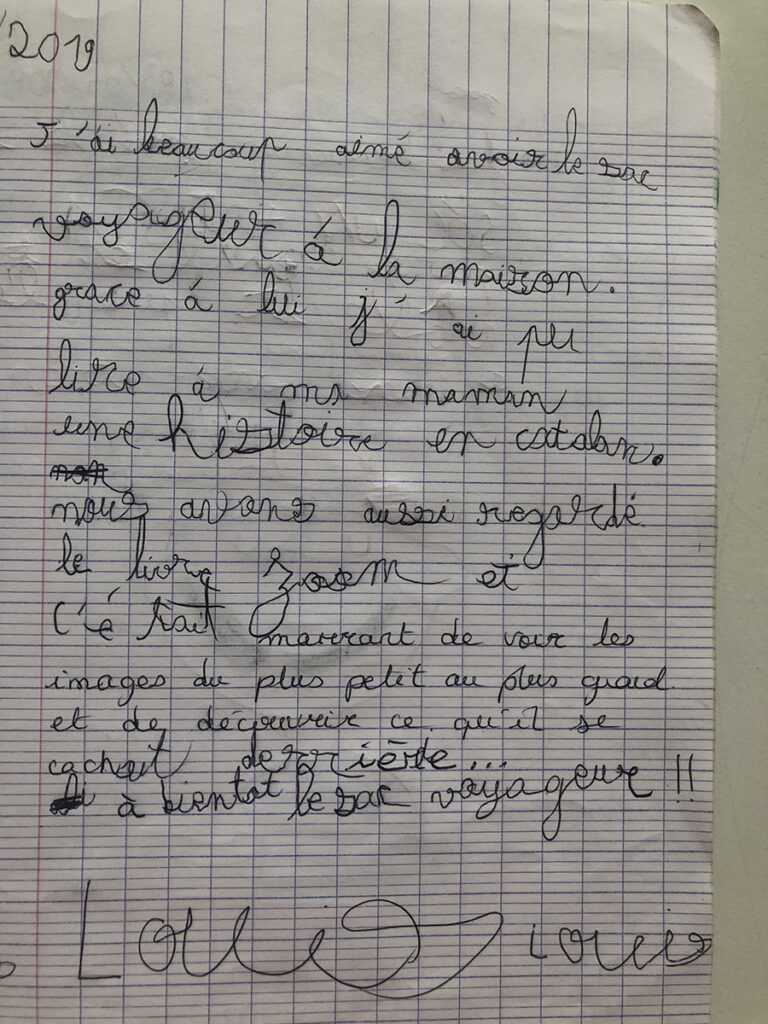 /2019
J'ai beaucoup aimé avoir le sac
voyageur à la maison.
grace à lui j'ai pu
lire à ma maman
une histoire en catalan.
nous avons aussi regardé
le livre zoom et
c'était marrant de voir les
images du plus petit au plus grand
et de découvrir ce qu'il se
cachait derrière...
à bientot le sac voyageur !!
Louis Louis